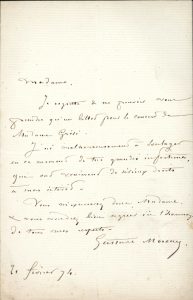 Madame,
Je regrette de ne pouvoir vous
prendre qu'un billet pour le concert de
Madame
J'ai malheureusement à soulager
en ce moment de très grandes infortunes,
qui ont vraiment de sérieux droits
à mon intérêt.
Vous m'excuserez donc Madame
& vous voudrez bien agréer ici l'hommage
de tous mes respects.
Gustave Moreau
21 février 74.